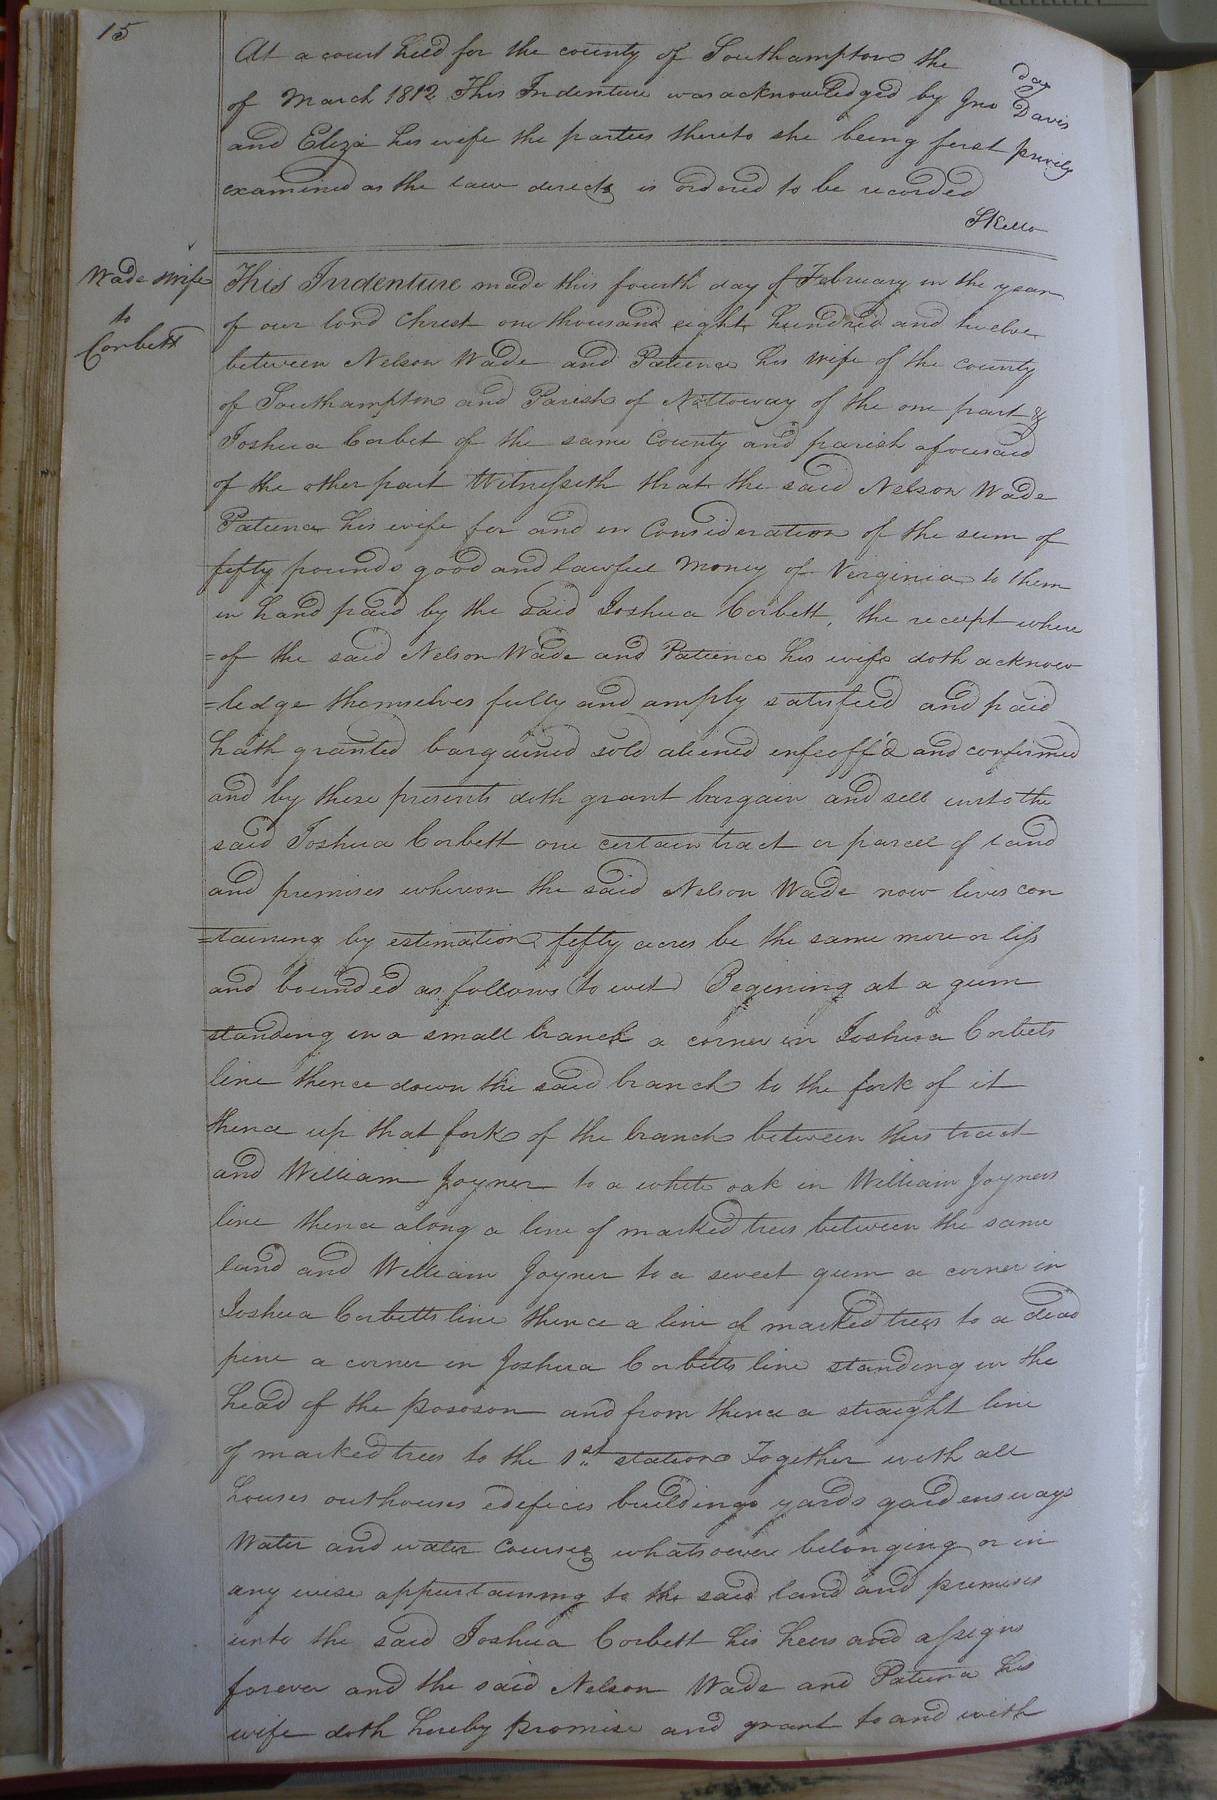 15
At a court held for the county of Southampton the day
of March 1812 This Indenture was acknowledged by Jno Davis
and Eliza his wife the parties thereto she being first privily
examined as the law directs is ordered to be recorded
SKello
Wade & wife
to
Corbett
This Indenture made this fourth day of February in the year
of our lord Christ one thousand eight hundrid and twelve
between Nelson Wade and Patience his wife of the county
of Southampton and Parish of Nottoway of the one part &
Joshua Corbet of the same County and parish aforesaid
of the other part Witnesseth that the said Nelson Wade
Patience his wife for and in Consideration of the sum of
fifty pounds good and lawfull Money of Virginia to them
in hand paid by the said Joshua Corbett, the receipt where
=of the said Nelson Wade and Patience his wife doth acknow
=ledge themselves fully and amply satisfied and paid
hath granted bargained sold aliened enfeoff'd and confirmed
and by these presents doth grant bargain and sell unto the
said Joshua Corbett one certain tract or parcel of land
and premises whereon the said Nelson Wade now lives con
=taining by estimation fifty acres be the same more or less
and bounded as follows (to wit) Begining at a gum
standing in a small branch a corner in Joshua Corbets
line thence down the said branch to the fork of it
thence up that fork of the branch between this tract
and William Joyner to a white oak in William Joyners
line thence along a line of marked trees between the same
land and William Joyner to a sweet gum a corner in
Joshua Corbetts line thence a line of marked trees to a dead
pine a corner in Joshua Corbetts line standing in the
head of the pososon and from thence a straight line
of marked trees to the 1st station Together with all
houses outhouses edefices buildings yards gardens ways
Water and water Courses whatsoever belonging or in
any wise appurtaining to the said land and premises
unto the said Joshua Corbett his heirs and assigns
forever and the said Nelson Wade and Patience his
wife doth hereby promise and grant to and with